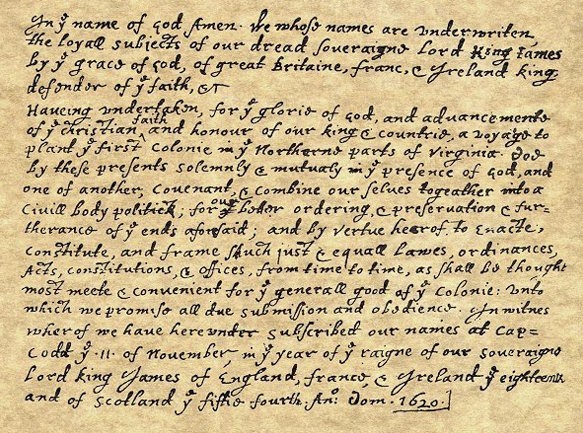 In yͤ name of god Amen. We whose names are vnderwriten,
the loyall subjects of our dread soveraigne Lord King James
by yͤ grace of God, of great Britaine, franc, & Ireland king,
defender of yͤ faith, &c
Haveing vndertaken, for yͤ glorie of God, and advancemente
of yͤ christian faith and honour of our king & countrie, a voyage to
plant yͤ first colonie in yͤ Northerne parts of Virginia. Doe
by these presents solemnly & mutualy in yͤ presence of God, and
one of another, covenant, & combine our selves togeather into a
Civill body politick; for our better ordering, & preservation & fur-
therance of yͤ ends aforesaid; and by vertue hearof, to Enacte,
constitute, and frame such just & equall Lawes, ordinances,
Acts, constitutions, & offices, from time to time, as shall be thought
most meete & convenient for yͤ generall good of yͤ Colonie: vnto
which we promise all due submission and obedience. In witnes
wherof we have herevnder subscribed our names at Cap=
Codd yͤ ·11· of November, in yͤ year of yͤ raigne of our soveraigne
Lord king James of England, france, & Ireland yͤ eighteenth
and of Scotland yͤ fiftie fourth. Anͦ: Dom. 1620.]